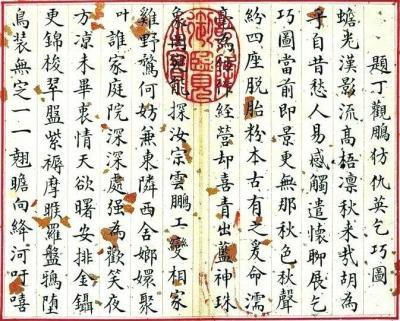 題丁觀鵬仿仇英乞巧圖
蟾光漢影流高梧凜秋來哉胡為
乎自昔愁人易感觸遣懷聊展乞
巧圖當前即景更無那秋色秋聲
紛四座脫胎粉本古有之爰命濡
毫為作經營却喜青出藍神珠
象罔能探汝宗雲鵬工雙相家
雞野鶩何妨兼東隣西舍嫏嬛聚
叶誰家庭院深深處强為歡笑夜
方凉未畢衷情天欲曙安排金鑷
更錦梭翠盤紫褥摩睺羅盤鴉堕
鳥裝無定一一翹瞻向絳河吁嘻